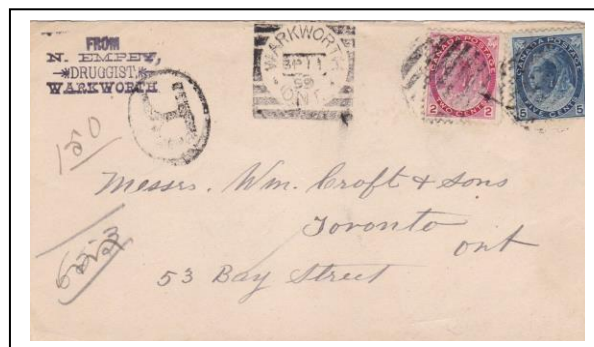 FROM
N. EMPEY,
DRUGGIST,
WARKWORTH
WARKWORTH
SP 11
99
ONT
R
CANADA POSTAGE
2 TWO CENTS 2
CANADA POSTAGE
5 FIVE CENTS 5
150
Messrs. Wm. Croft & Sons
Toronto
Ont
53 Bay Street